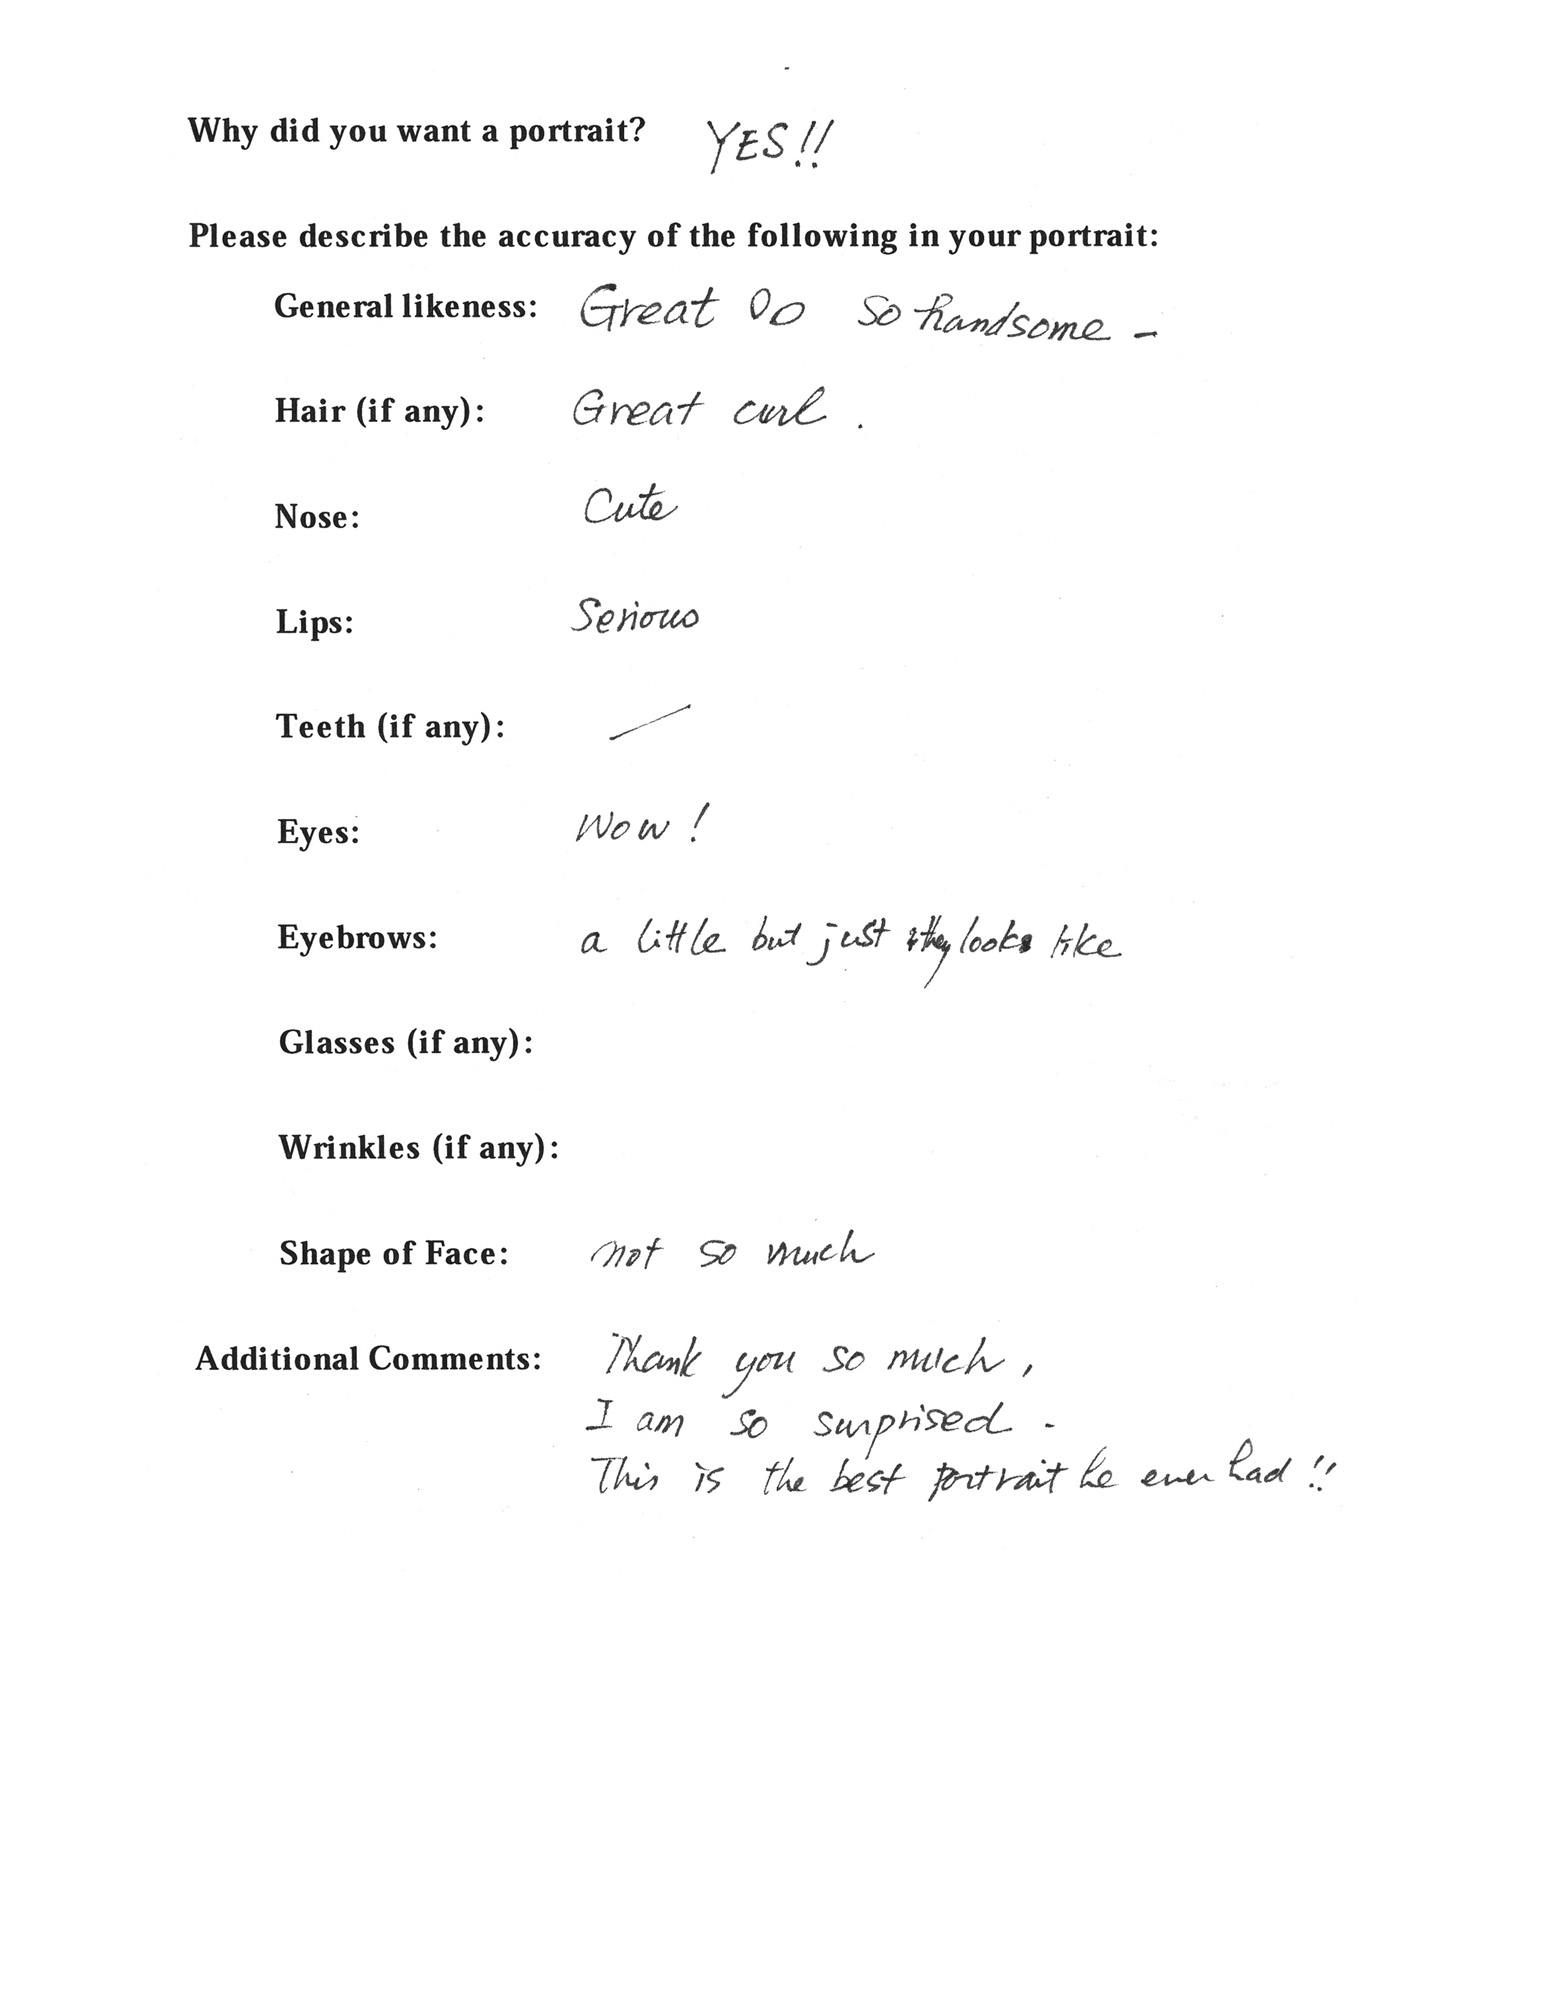 Why did you want a portrait? YES!!
Please describe the accuracy of the following in your portrait:
General likeness: Great So handsome -
Hair (if any): Great curl.
Nose: Cute
Lips: Serious
Teeth (if any): /
Eyes: Wow!
Eyebrows: a little but just they looks like
Glasses (if any):
Wrinkles (if any):
Shape of Face: not so much
Additional Comments: Thank you so much,
I am so surprised.
This is the best portrait he ever had!!